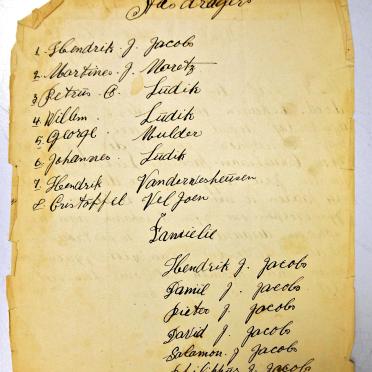 1. Hendrik. J. Jacobs
2. Martines. J. Moretz
3 Petrus. C. Ludik
4. Willem. Ludik
5. George. Mulder
6. Johannes. Ludik
7. Hendrik
8. Cristoffel Veljoen
Familie
Hendrik J. Jacobs
Daniel J. Jacobs
Pieter J. Jacobs
David J. Jacobs
Salamon. J Jacobs
J Jacobs